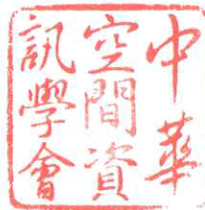 中華
空間資
訊學會